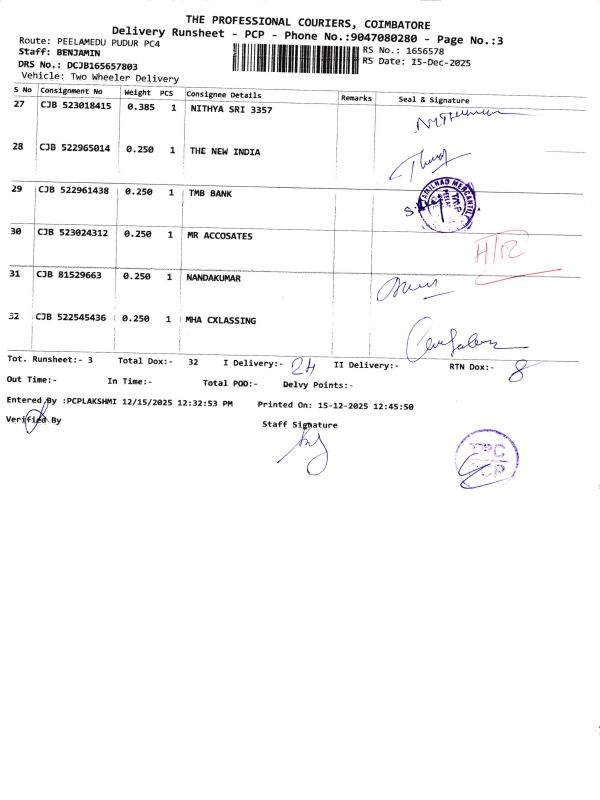 THE PROFESSIONAL COURIERS, COIMBATORE
Delivery Runsheet - PCP - Phone No.:9047080280 - Page No.:3
Route: PEELAMEDU PUDUR PC4
RS No.: 1656578
Staff: BENJAMIN
RS Date: 15-Dec-2025
DRS No.: DCJB165657803
Vehicle: Two Wheeler Delivery
S No Consignment No Weight PCS Consignee Details Remarks Seal & Signature
27 CJB 523018415 0.385 1 NITHYA SRI 3357
28 CJB 522965014 0.250 1 THE NEW INDIA
29 CJB 522961438 0.250 1 TMB BANK
TAMILNAD MERCANTILE
30 CJB 523024312 0.250 1 MR ACCOSATES
31 CJB 81529663 0.250 1 NANDAKUMAR
32 CJB 522545436 0.250 1 MHA CXLASSING
Tot. Runsheet:- 3 Total Dox:- 32 I Delivery:- 24 II Delivery:- RTN Dox:- 8
Out Time:- In Time:- Total POD:- Delvy Points:-
Entered By :PCPLAKSHMI 12/15/2025 12:32:53 PM Printed On: 15-12-2025 12:45:50
Verified By Staff Signature
TPC
PCP